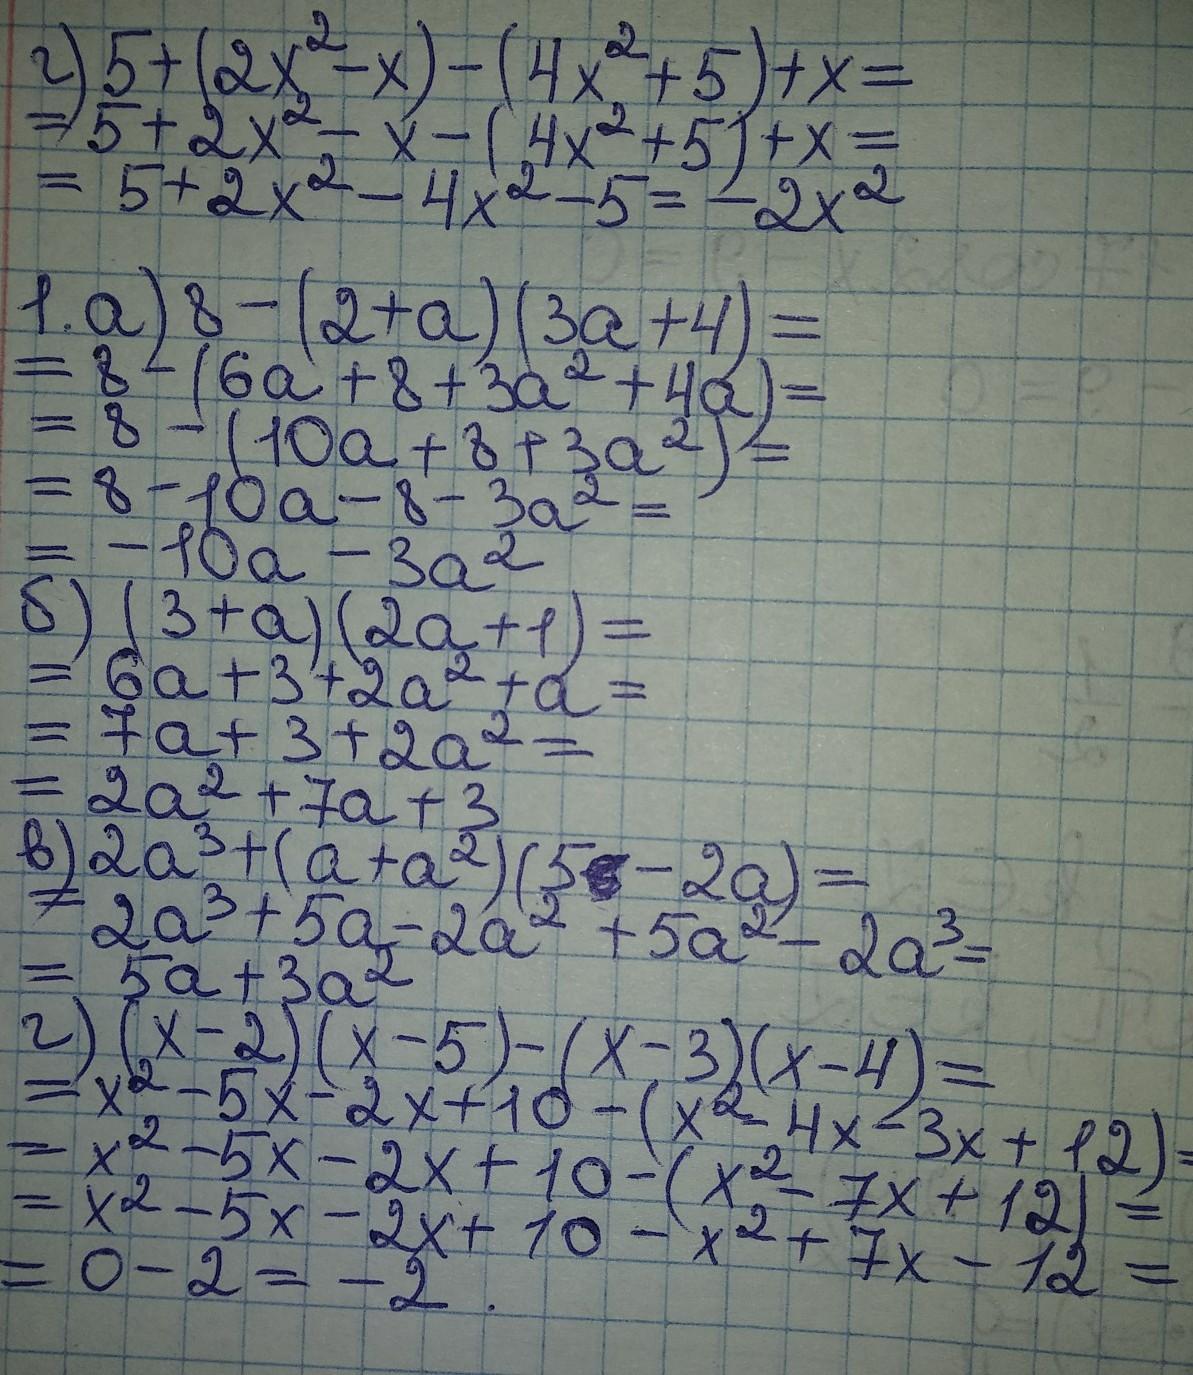 г) 5+(2x²-x)-(4x²+5)+x=
= 5+2x²-x-(4x²+5)+x=
= 5+2x²-4x²-5=-2x²
1. а) 8-(2+a)(3a+4)=
= 8-(6a+8+3a²+4a)=
= 8-(10a+8+3a²)=
= 8-10a-8-3a²=
= -10a-3a²
б) (3+a)(2a+1)=
= 6a+3+2a²+a=
= 7a+3+2a²=
= 2a²+7a+3
в) 2a³+(a+a²)(5-2a)=
= 2a³+5a-2a²+5a²-2a³=
= 5a+3a²
г) (x-2)(x-5)-(x-3)(x-4)=
= x²-5x-2x+10-(x²-4x-3x+12)=
= x²-5x-2x+10-(x²-7x+12)=
= x²-5x-2x+10-x²+7x-12=
= 0-2=-2.